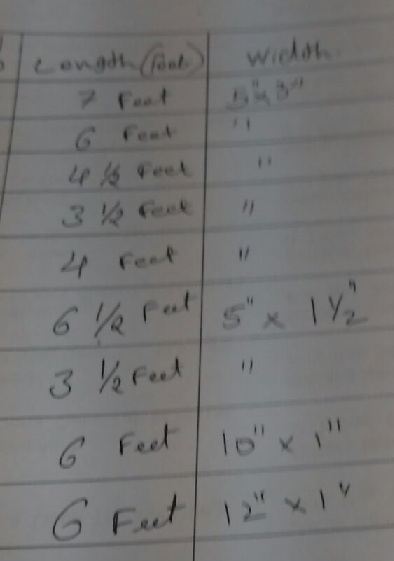 Length (Foot) Width
7 Feet 5"x3"
6 Feet "
4 1/2 Feet "
3 1/2 Feet "
4 Feet "
6 1/2 Feet 5" x 1 1/2"
3 1/2 Feet "
6 Feet 10" x 1"
6 Feet 12" x 1"